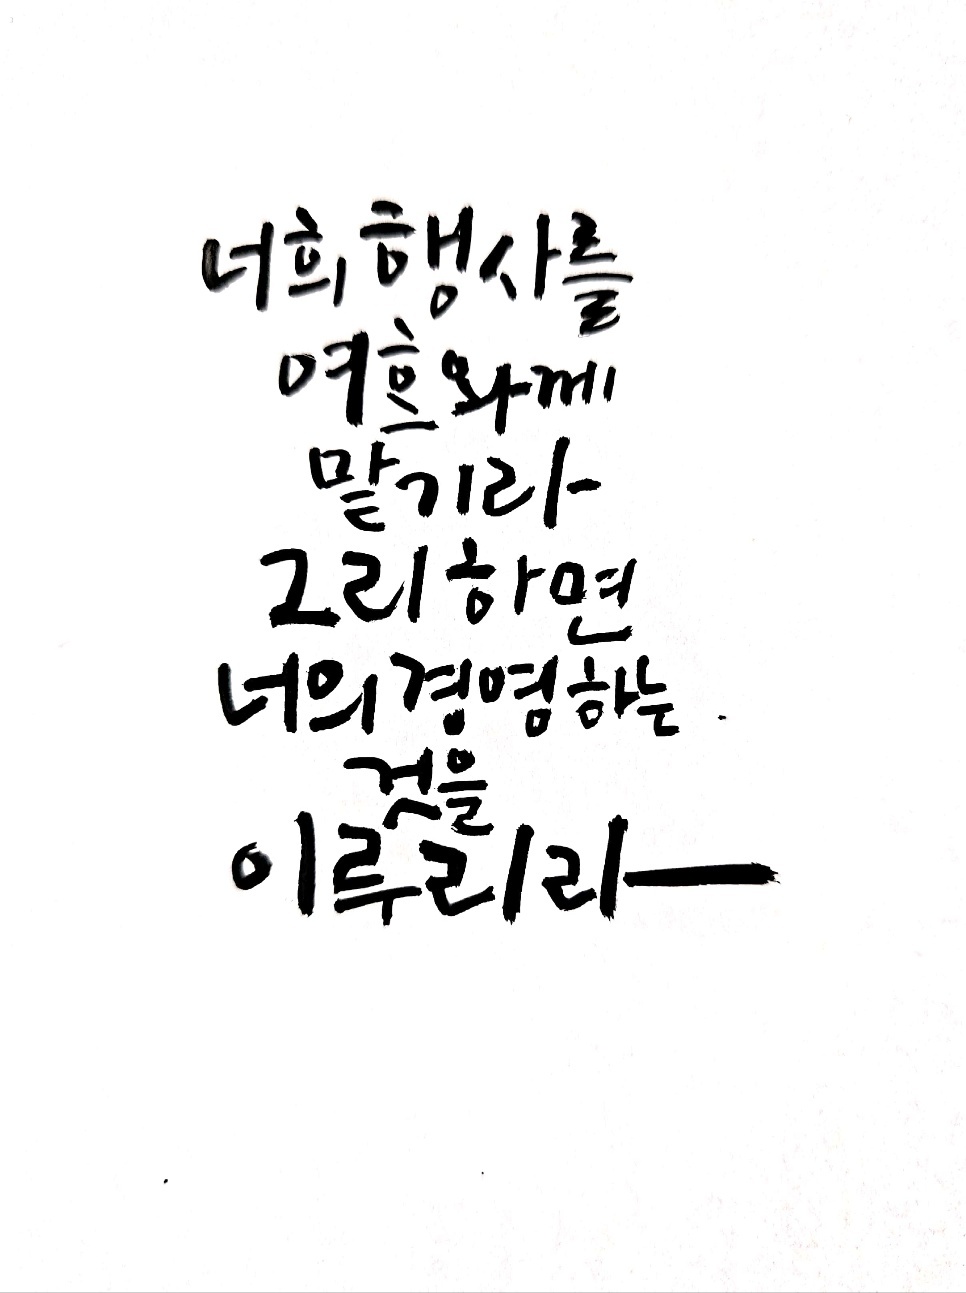 너희 행사를
여호와께
맡기라
그리하면
너의 경영하는
것을
이루리라